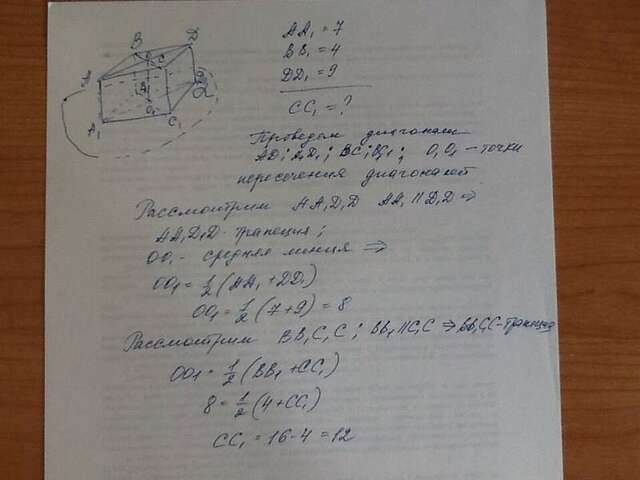 AA₁ = 7
BB₁ = 4
DD₁ = 9
CC₁ = ?
B
D
C
A₁
C₁
O₁
Проведем диагонали
AD; A₁D₁; BC; B₁C₁; O, O₁ – точки
пересечения диагоналей
Рассмотрим AA₁D₁D AA₁ || D₁D ⇒
AA₁D₁D - трапеция;
OO₁ - средняя линия ⇒
OO₁ = 1/2 (AA₁ + DD₁)
OO₁ = 1/2 (7+9) = 8
Рассмотрим BB₁C₁C; BB₁ || C₁C ⇒ BB₁C₁C - трапеция
OO₁ = 1/2 (BB₁ + CC₁)
8 = 1/2 (4 + CC₁)
CC₁ = 16 - 4 = 12